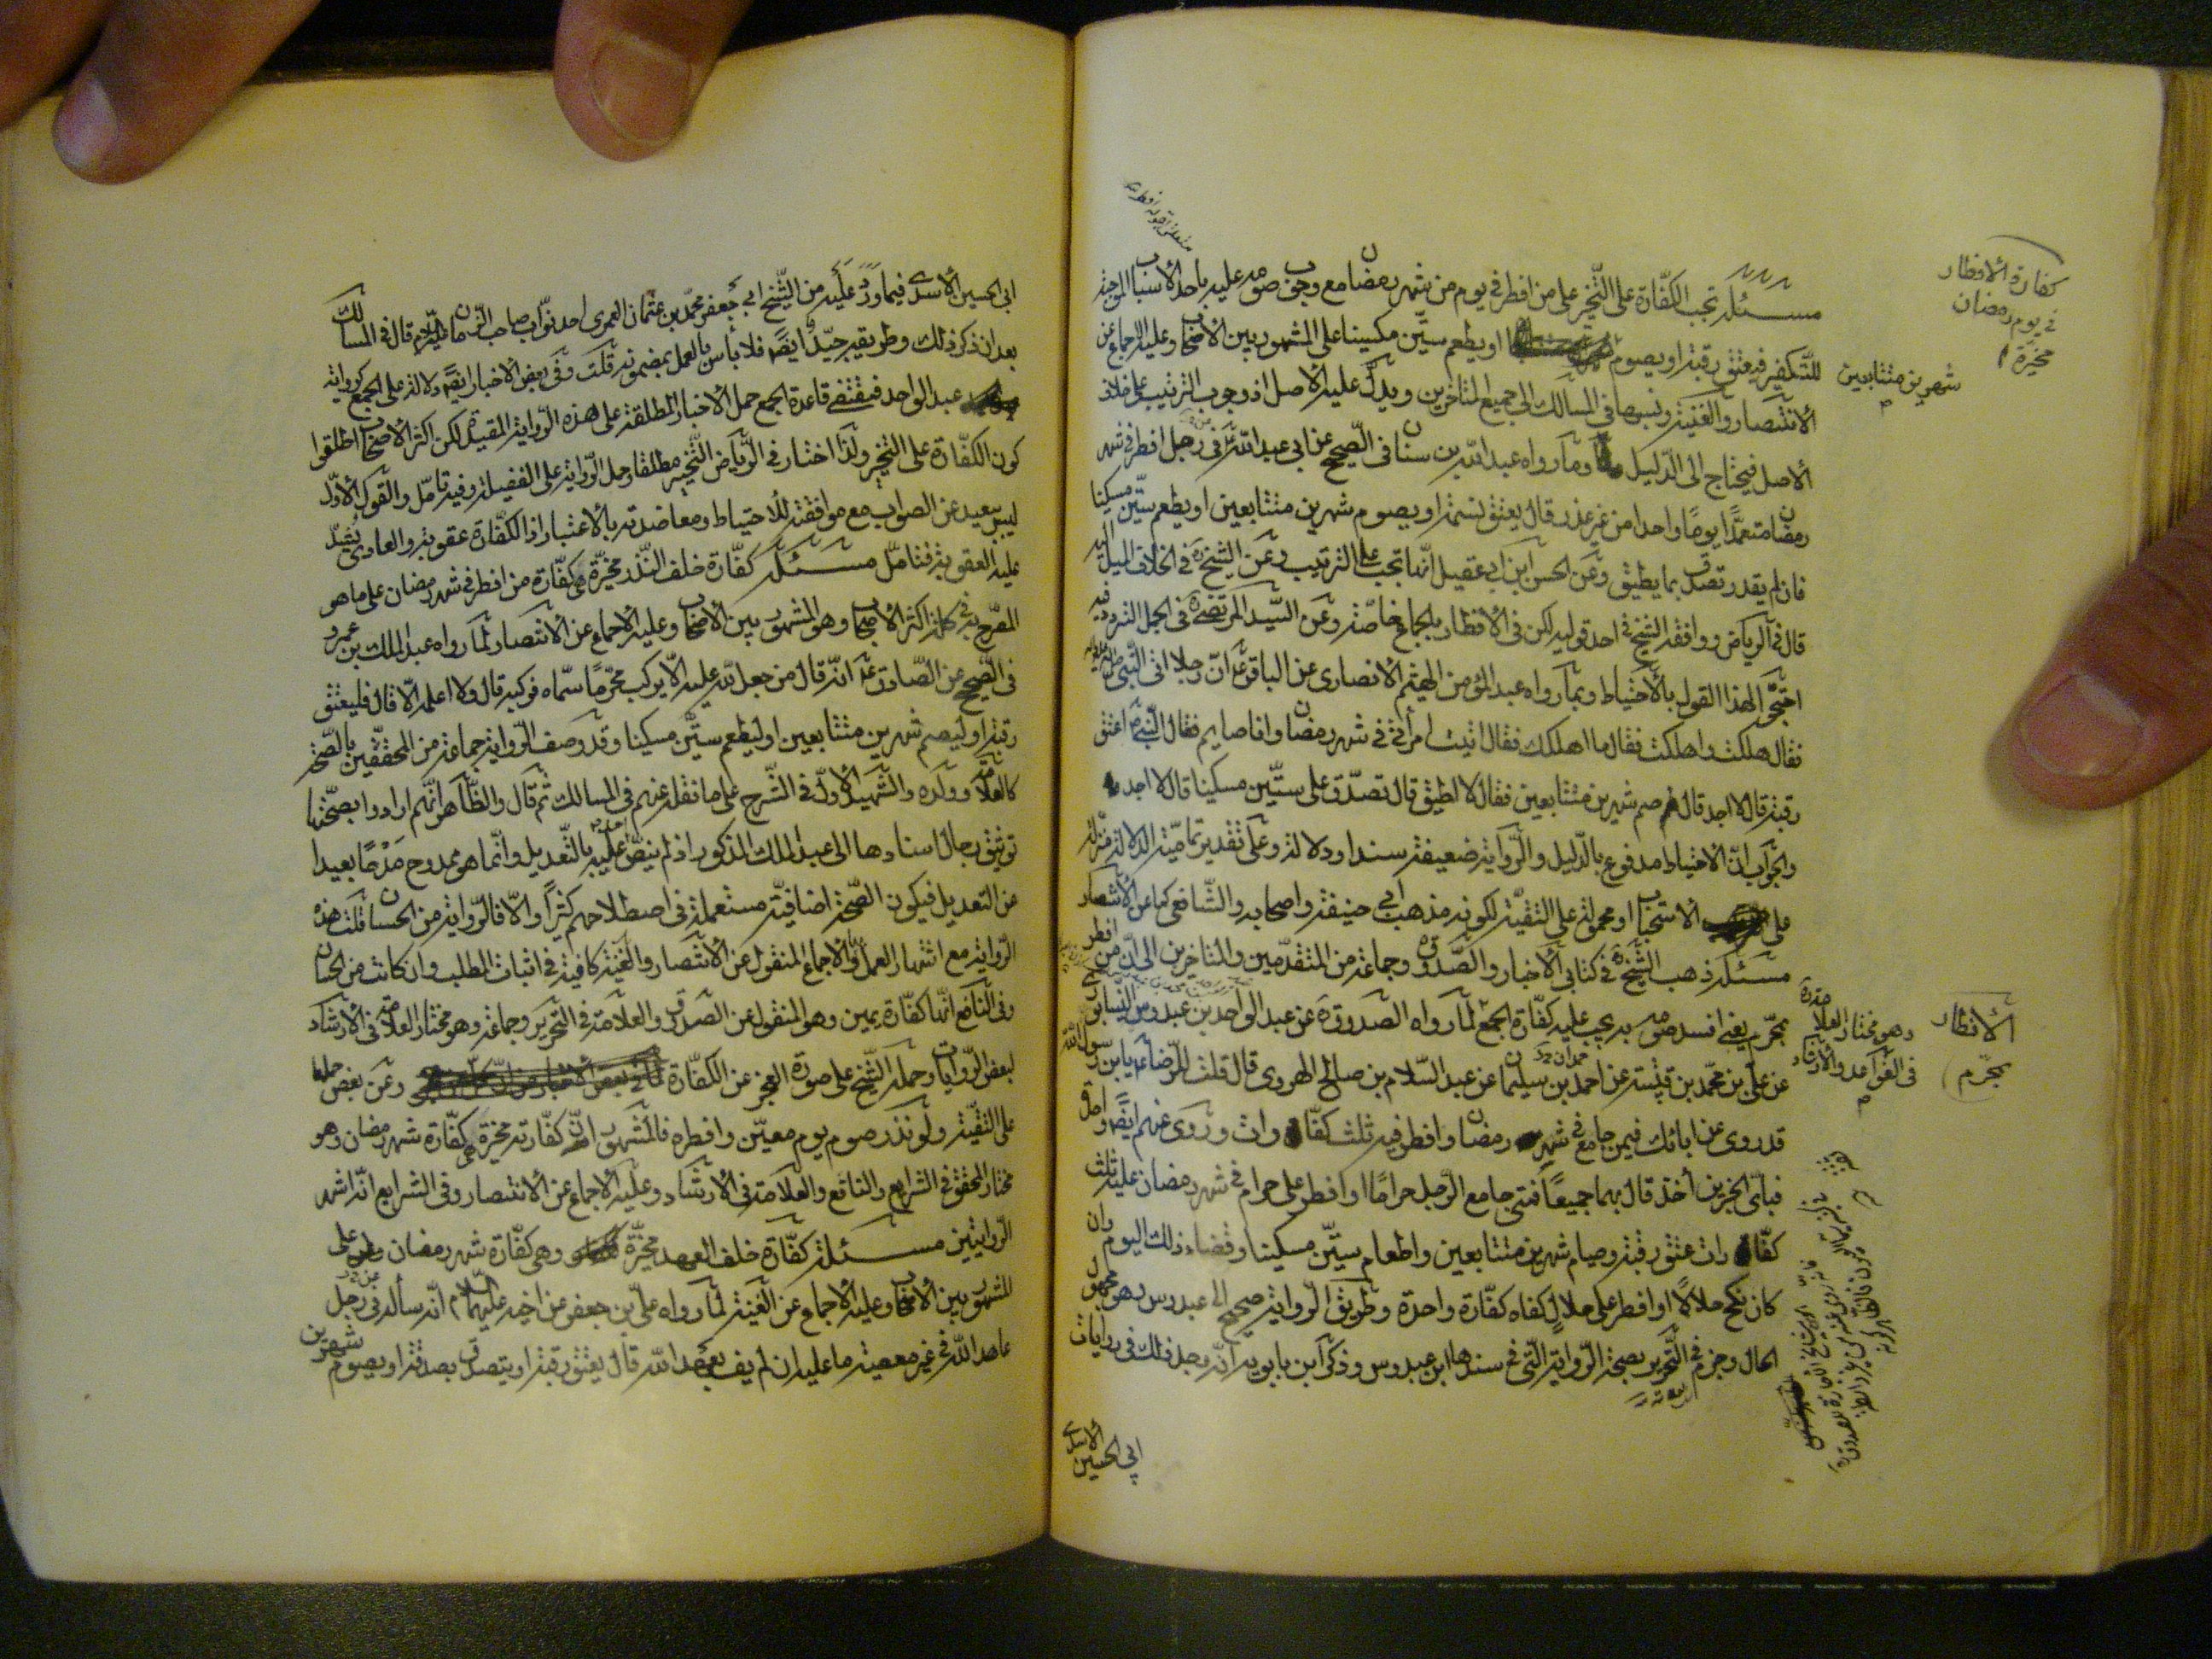 كفارة الافطار
في يوم رمضان
مخيرة
مسئلة تجب الكفّارة على التّخير على من افطر في يوم من شهر رمضان مع وجوب صومه عليه باحد الأسباب الموجبة
للتّكفير فيعتق رقبة او يصوم او يطعم ستّين مسكينا على المشهور بين الأصحاب وعليه الاجماع عن
شهرين متتابعين
الأنتصار والغنية ونسبها في المسالك الى جميع المتأخرين ويدلّ عليه الاصل اذ وجوب الترتيب على خلاف
الأصل فيحتاج الى الدّليل وما رواه عبد الله بن سنان في الصّحيح عن ابي عبد الله في رجل افطر في شهر
رمضان متعمّدًا يومًا واحدا من غير عذر قال يعتق نسمة او يصوم شهرين متتابعين او يطعم ستّين مسكينا
فان لم يقدر تصدّق بما يطيق وعن الحسن ابن ابي عقيل انّها تجب على الترتيب وعن الشيخ في الخلاف الميل اليه
قال في الرياض ووافقه الشيخ في احد قوليه لكن في الأفطار بالجماع خاصّة وعن السّيد المرتضى في الجمل التردد فيه
احتجّوا لهذا القول بالأحتياط وبما رواه عبد المؤمن الهيثم الانصاري عن الباقر انّ رجلا اتى النّبي
فقال هلكت واهلكت فقال ما اهلكك فقال اتيت امرأتي في شهر رمضان وانا صايم فقال النّبي اعتق
رقبة قال لا اجد قال صم شهرين متتابعين فقال لا اطيق قال تصدّق على ستّين مسكينا قال لا اجد
والجواب انّ الاحتياط مدفوع بالدّليل والرّواية ضعيفة سندا ودلالة وعلى تقدير تماميّة الدلالة منزّلة
على الاستحباب او محمولة على التقيّة لكونه مذهب ابي حنيفة واصحابه والشّافعي كما عن الأنتصار
مسئلة ذهب الشّيخ في كتابي الأخبار والصّدوق وجماعة من المتقدّمين والمتاخرين الى انّ من افطر
الافطار
بمحرّم
بمحرّم يعني افسد صومه به يجب عليه كفّارة الجمع لما رواه الصدوق عن عبد الواحد بن عبدوس النّيسابوري
وهو مختار العلامة
في القواعد والارشاد
عن عليّ بن محمّد بن قتيبة عن احمد بن سليمان عن عبد السّلام بن صالح الهروي قال قلت للرّضا يابن رسول الله
قد روي عن ابائك فيمن جامع في شهر رمضان وافطر فيه ثلث كفّارات وروي عنهم ايضًا واحدة
فبايّ الخبرين أخذ قال بهما جميعًا فمتى جامع الرّجل حرامًا او افطر على حرام في شهر رمضان عليه ثلث
كفّارات عتق رقبة وصيام شهرين متتابعين واطعام ستّين مسكينا وقضاء ذلك اليوم وان
كان نكح حلالًا او افطر على حلال كفاه كفّارة واحدة وطريق الرّواية صحيح الى عبدوس وهو مجهول
الحال وجزم في التّحرير بصحة الرّواية التي في سندها ابن عبدوس وذكر ابن بابويه انّه وجد ذلك في روايات
ابي الحسين
الاسدي
ابي الحسين الأسدي فيما ورد عليه من الشّيخ ابي جعفر محمّد بن عثمان العمري احد نوّاب صاحب الزّمان قال في المسالك
بعد ان ذكر ذلك وطريقه جيّد ايضًا فلا بأس بالعمل بمضمونه قلت وفي بعض الاخبار ايضًا دلالة على الجمع كرواية
عبد الواحد فيقتضي قاعدة الجمع حمل الأخبار المطلقة على هذه الرّواية المقيدة لكن اكثر الأصحاب اطلقوا
كون الكفّارة على التخير ولذا اختار في الرّياض التّخير مطلقا وحمل الرّواية على الفضيلة وفيه تأمّل والقول الأوّل
ليس ببعيد عن الصواب مع موافقته للأحتياط ومعاضدته بالأعتبار اذ الكفّارة عقوبة والعادي يشدّ
عليه العقوبة فتأمّل مسئلة كفّارة خلف النّذر مخيّرة ككفّارة من افطر في شهر رمضان على ما هو
المصّرح به في كلمة اكثر الأصحاب وهو المشهور بين الأصحاب وعليه الاجماع عن الأنتصار لما رواه عبد الملك بن عمرو
في الصّحيح عن الصّادق انّه قال من جعل لله عليه الّا يركب محرّمًا سمّاه فركبه قال ولا اعلمه الّا قال فليعتق
رقبة او ليصم شهرين متتابعين او ليطعم ستّين مسكينا وقد وصف الرّواية جماعة من المحقّقين بالصّحة
كالعلّامة وولده والشّهيد الأوّل في الشّرح على ما نقله عنهم في المسالك ثم قال والظّاهر انّهم ارادوا بصحّتها
توثيق رجال اسنادها الى عبد الملك المذكور اذ لم ينصّ عليه بالتّعديل وانّما هو ممدوح مدحًا بعيدا
من التعديل فيكون الصّحة اضافيّة مستعملة في اصطلاحهم كثيرًا والّا فالرّواية من الحسان قلت هذه
الرّواية مع اشتهار العمل والاجماع المنقول عن الأنتصار والغنية كافية في اثبات المطلب وان كانت من الحسان
وفي النّافع انّها كفّارة يمين وهو المنقول عن الصدوق والعلّامة في التّحرير وجماعة وهو مختار العلّامة في الأرشاد
لبعض الرّوايات وحمله الشّيخ على صورة العجز عن الكفّارة وعن بعض حملها
على التّقيّة ولو نذر صوم يوم معيّن وافطره فالمشهور انّ كفّارته مخيّرة ككفّارة شهر رمضان وهو
مختار المحقّق في الشرايع والنافع والعلّامة في الأرشاد وعليه الأجماع عن الانتصار وفي الشرايع انّه اشهر
الرّوايتين مسئلة كفّارة خلف العهد مخيّرة وهي كفّارة شهر رمضان على
المشهور بين الأصحاب وعليه الأجماع عن الغنية لما رواه عليّ بن جعفر عن اخيه عليهما السّلام انّه سأله عن رجل
عاهد الله في غير معصية ما عليه ان لم يف بعهد الله قال يعتق رقبة او يتصدّق بصدقة او يصوم شهرين